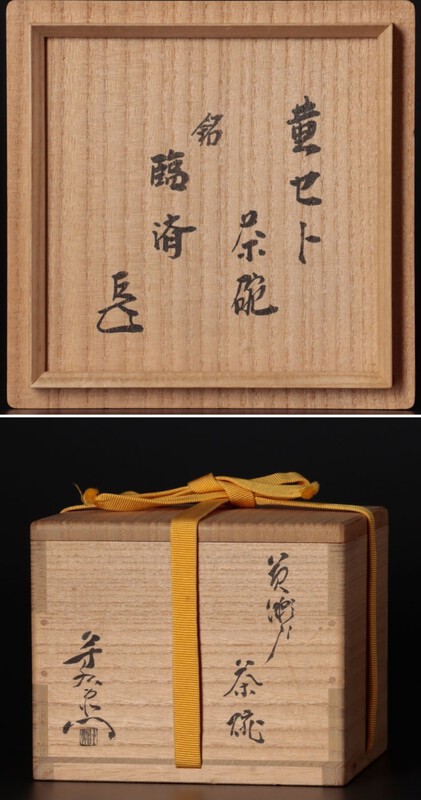 黄セト
茶碗
銘
臨済
黄瀬戸
茶碗